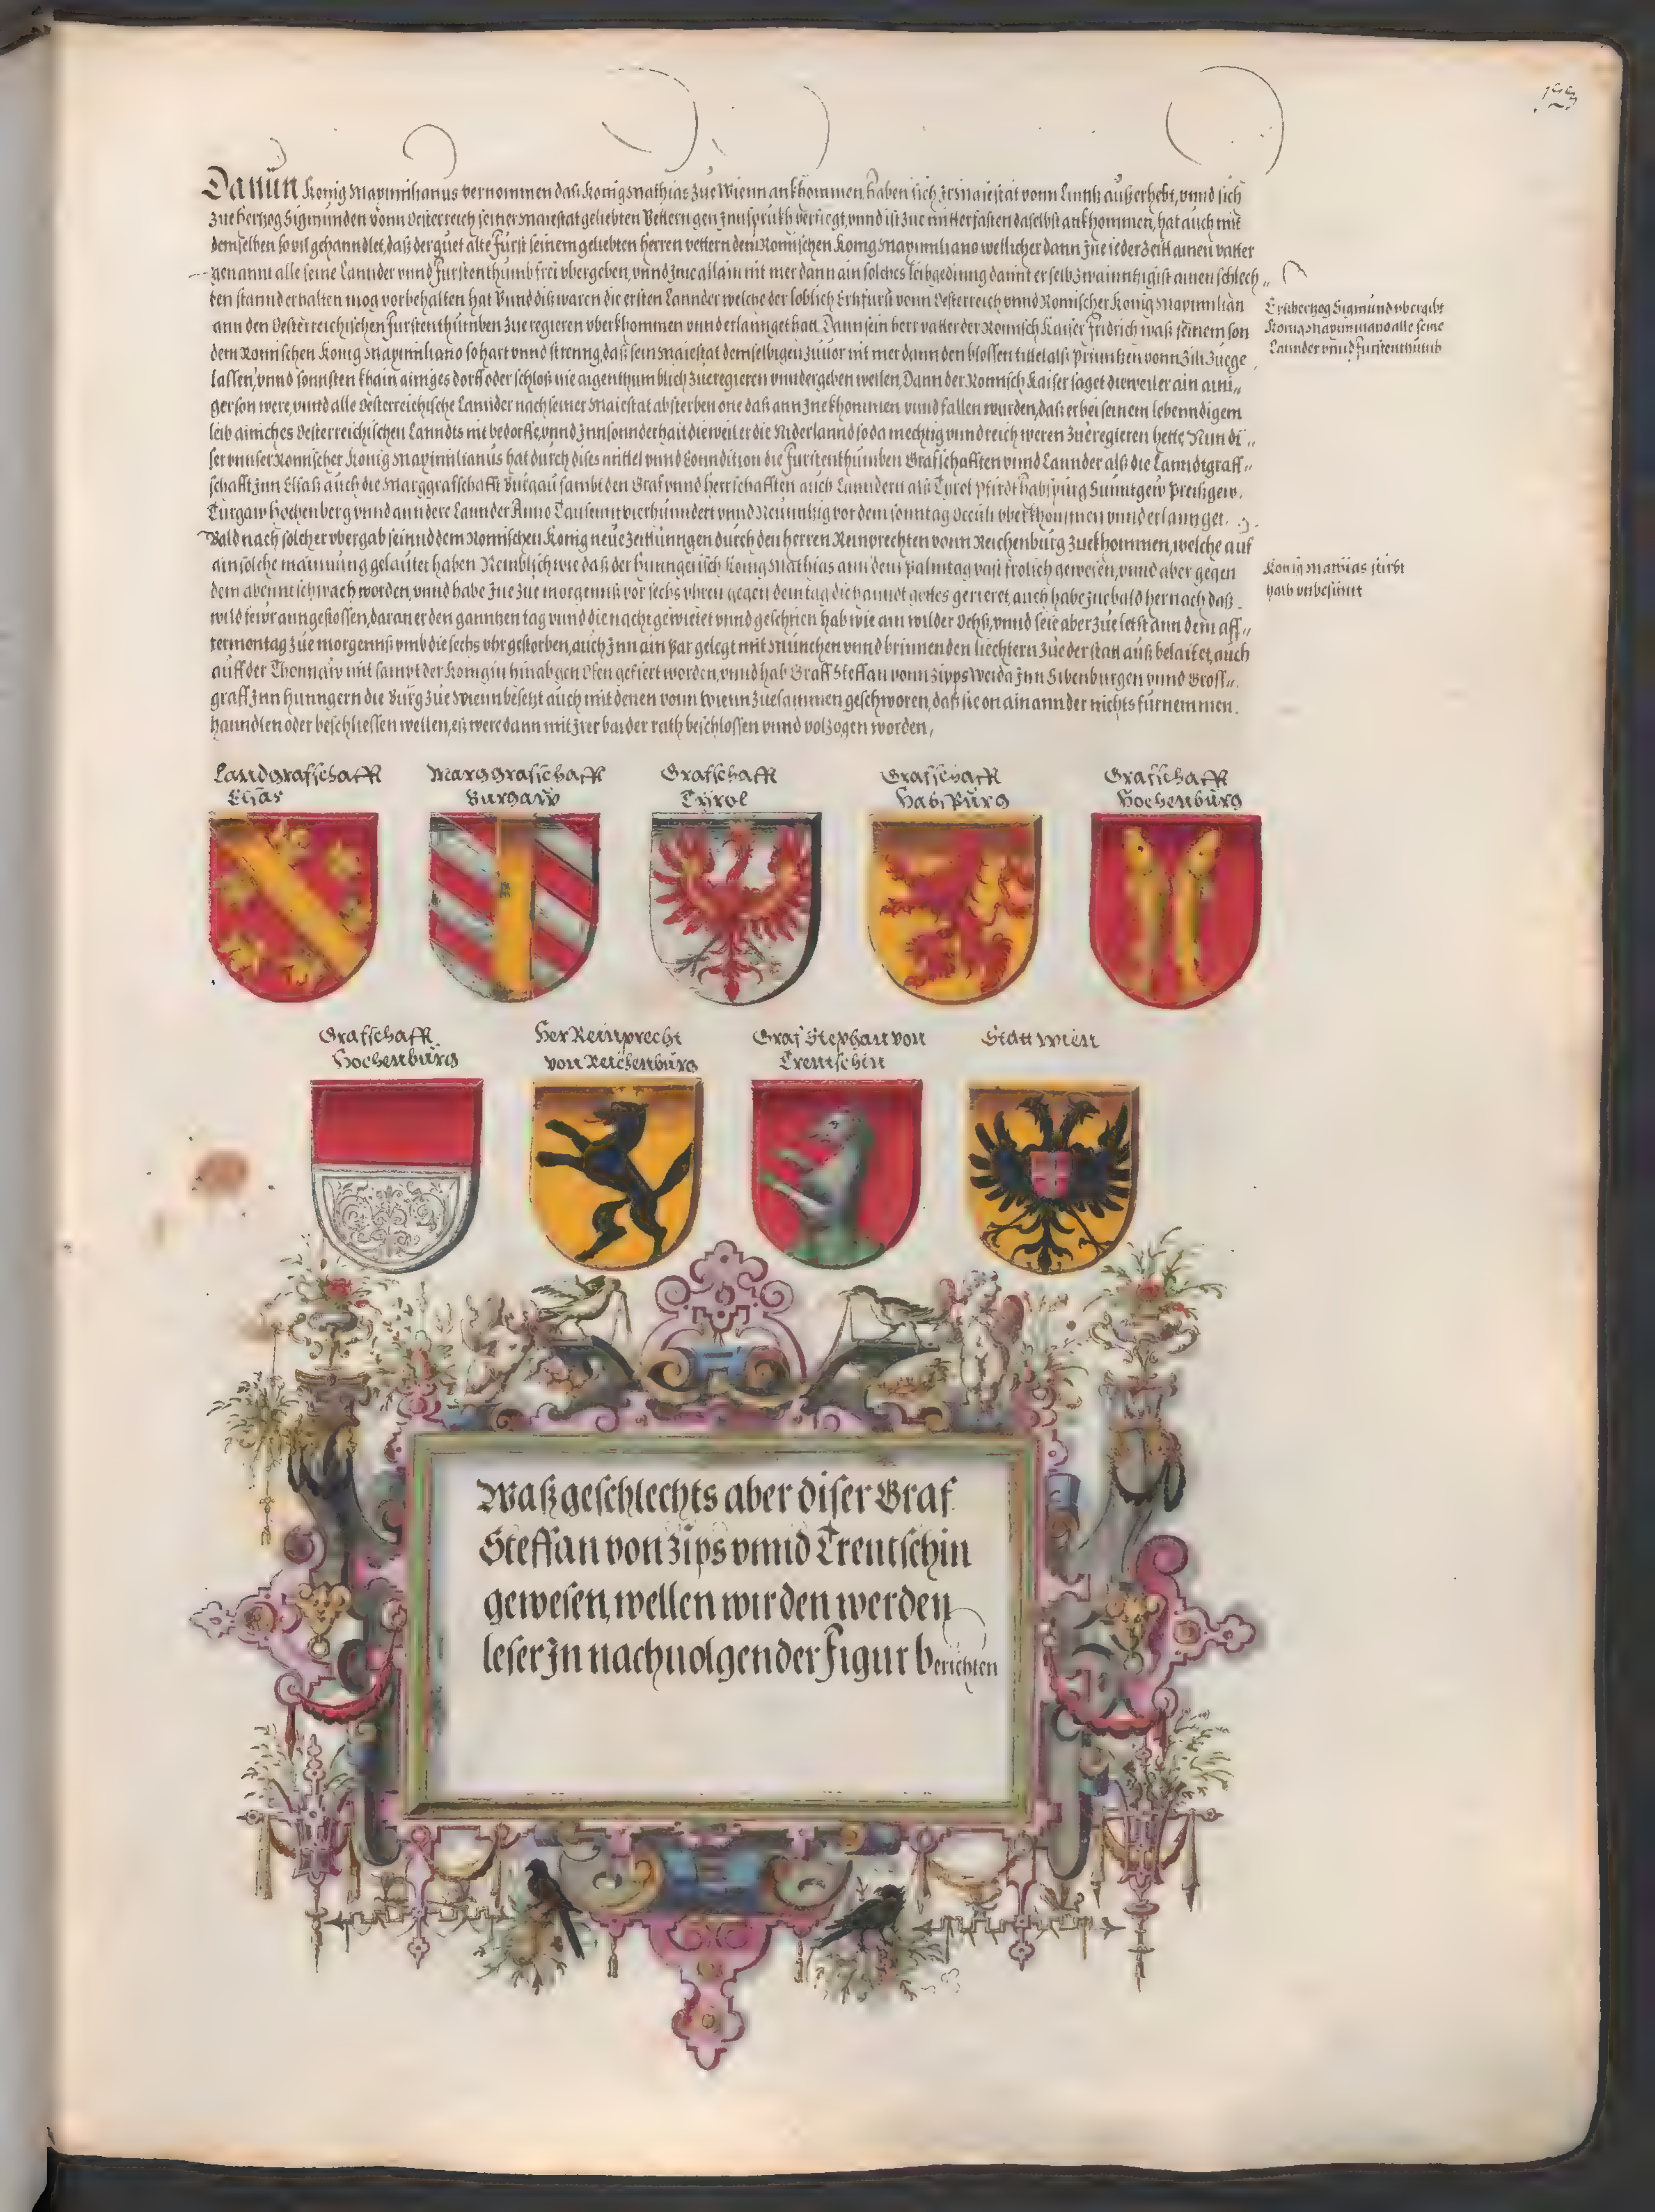 Da nŭn Konig Maximilianus vernommen daß Konig Mathias zue Wienn ankhommen, haben sich Jr Maiestat vonn Linntz außerhebt, vnnd sich
zue hertzog Sigmŭnden vonn Oesterreich seiner Maiestat geliebten Vettern gen Jnnsprŭkh verfiegt, vnnd ist zue mitterfasten daselbst ankhommen, hat auch mit
demselben so vil gehanndlet, daß der guet alte Fürst seinem geliebten herren vettern dem Romischen Konig Maximiliano wellicher dann Jne ieder Zeitt ainen vatter
genannt alle seine Lannder vnnd Furstenthumb frei vbergeben, vnnd Jme allain nit mer dann ain solches leibgeding damit er selb zwainntzigist ainen schlech„
ten stannd erhalten mog vorbehalten hat Vnnd diß waren die ersten Lannder welche der loblich Ertzfurst vonn Oesterreich vnnd Romischer Konig Maximilian
ann den Oesterreichischen furstenthumben zue regieren vberkhommen vnnd erlannget hatt. Dann sein herr vatter der Romisch Kaiser Fridrich waß seinem son
dem Romischen Konig Maximiliano so hart vnnd strenng, daß sein Maiestat demselbigen zuuor nit mer dann den blossen tittel alß Printzen vonn Zili zuege„
lassen, vnnd sonnsten khain ainiges dorff oder schloß nie aigenthumblich zueregieren vnndergeben wellen, Dann der Romisch Kaiser saget dieweil er ain aini„
ger son were, vnnd alle Oesterreichische Lannder nach seiner Maiestat absterben one daß ann Jne khommen vnnd fallen wurden, daß er bei seinem lebenndigem
leib ainiches Oesterreichischen Lanndts nit bedorffe, vnnd Jnnsonnderhait dieweil er die Niderlannd so da mechtig vnnd reich weren zueregieren hette, Nun di„
ser vnnser Romischer Konig Maximilianus hat durch dises mittel vnnd Conndition die furstenthumben Grafschafften vnnd Lannder alß die Lanndtgraff„
schafft Jnn Elsaß auch die Marggrafschafft Burgau sambt den Graf vnnd herrschafften auch Lanndern alß Tyrol Pfirdt Habspŭrg Sŭnntgew Preißgew.
Turgaw Hochenberg vnnd anndere Lannder Anno Tausennt vierhŭnndert vnnd Neŭnntzig vor dem sonntag Occuli vberkhommen vnnd erlannget.
Bald nach solcher vbergab seinnd dem Romischen Konig neŭe Zeittŭnngen durch den herren Reinprechten vonn Reichenbŭrg zuekhommen, welche auf
ain solche mainŭng gelaŭtet haben Nemblich wie daß der hŭnngerisch Konig Mathias ann dem Palmtag vast frolich gewesen, vnnd aber gegen
dem abennt schwach worden, vnnd habe Jne zue morgennß vor sechs vhren gegen dem tag die hanndt gottes gerieret, auch habe Jne bald hernach daß
wild feŭr anngestossen, daran er den ganntzen tag vnnd die nacht gewietet vnnd geschrien hab wie ain wilder Ochß, vnnd seie aber zue letst ann dem aff„
termontag zue morgennß vmb die sechs vhr gestorben, auch Jnn ain Par gelegt mit Mŭnchen vnnd brinnenden liechtern zue der statt auß belaitet, auch
auff der Thonnaw mit sampt der Konigin hinab gen Ofen gefiert worden, vnnd hab Graff Steffan vonn Zipps Weida Jnn Sibenbŭrgen vnnd Groß„
graff Jnn Hŭnngern die Bŭrg zue Wienn besetzt auch mit denen vonn Wienn zuesammen geschworen, daß sie on ainannder nichts fŭrnemmen.
hanndlen oder beschliessen wellen, eß were dann mit Jrer baider rath beschlossen vnnd volzogen worden,
Ertzhertzog Sigmŭnd vbergibt
Konig Maximiliano alle seine
Lannder vnnd Furstenthumb
Konig Mattias stirbt
halb vnbesinnt
Landgrafschafft
Elsas
Marggrafschafft
Burgaw
Grafschafft
Tyrol
Grafschafft
Habspŭrg
Grafschafft
Hochenbŭrg
Grafschafft
Hochenbŭrg
Her Reinprecht
von Reichenbŭrg
Graf Stephan von
Trentschin
Statt Wien
Waß geschlechts aber diser Graf
Steffan von Zips vnnd Trentschin
gewesen, wellen wir den werden
leser Jn nachuolgender Figur berichten